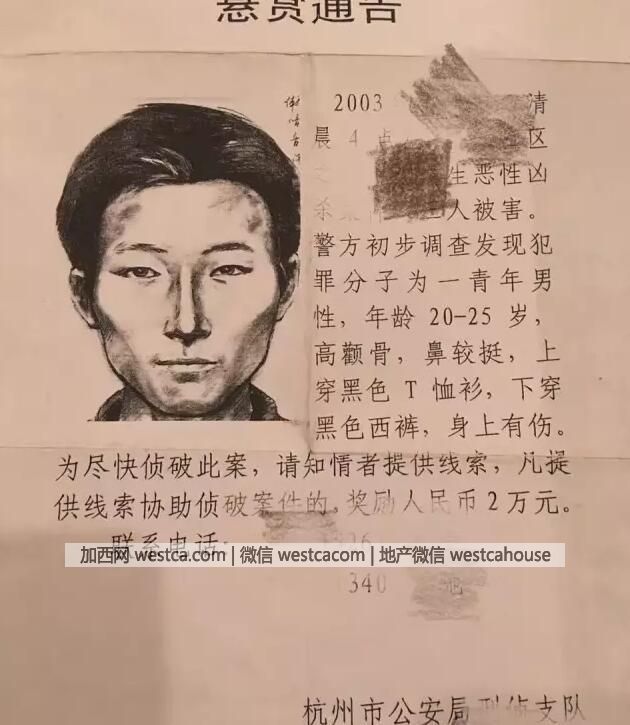 悬赏通告
2003 清
晨 4 点 区
生恶性凶
杀 人被害。
警方初步调查发现犯
罪分子为一青年男
性，年龄 20-25 岁，
高颧骨，鼻较挺，上
穿黑色 T 恤衫，下穿
黑色西裤，身上有伤。
为尽快侦破此案，请知情者提供线索，凡提
供线索协助侦破案件的。奖励人民币 2 万元。
联系电话：
加西网 westca.com | 微信 westcacom | 地产微信 westcahouse
340
杭州市公安局刑侦支队